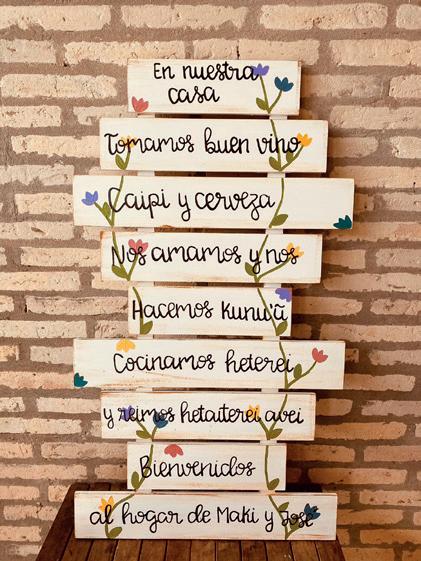 En nuestra
casa
Tomamos buen vino
Caipi y cerveza
Nos amamos y nos
Hacemos kunu'ũ
Cocinamos heterei
y reimos hetaiterei avei
Bienvenidos
al hogar de Maki y José